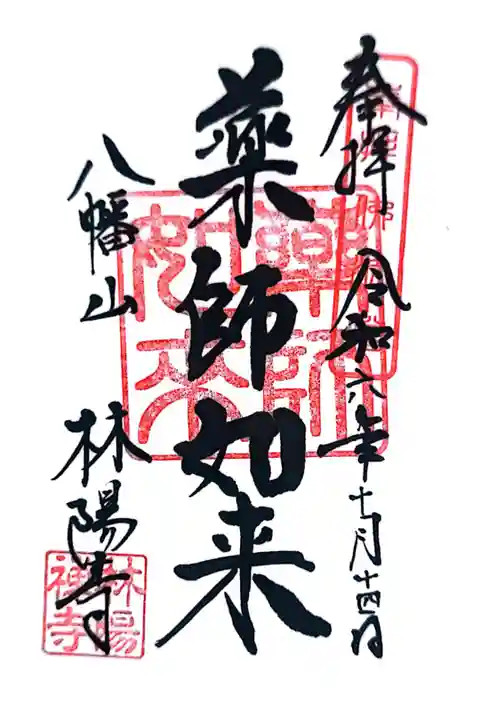 奉拝 令和六年十一月十四日
薬師如来
八幡山 林陽寺
薬師如来
林陽禅寺